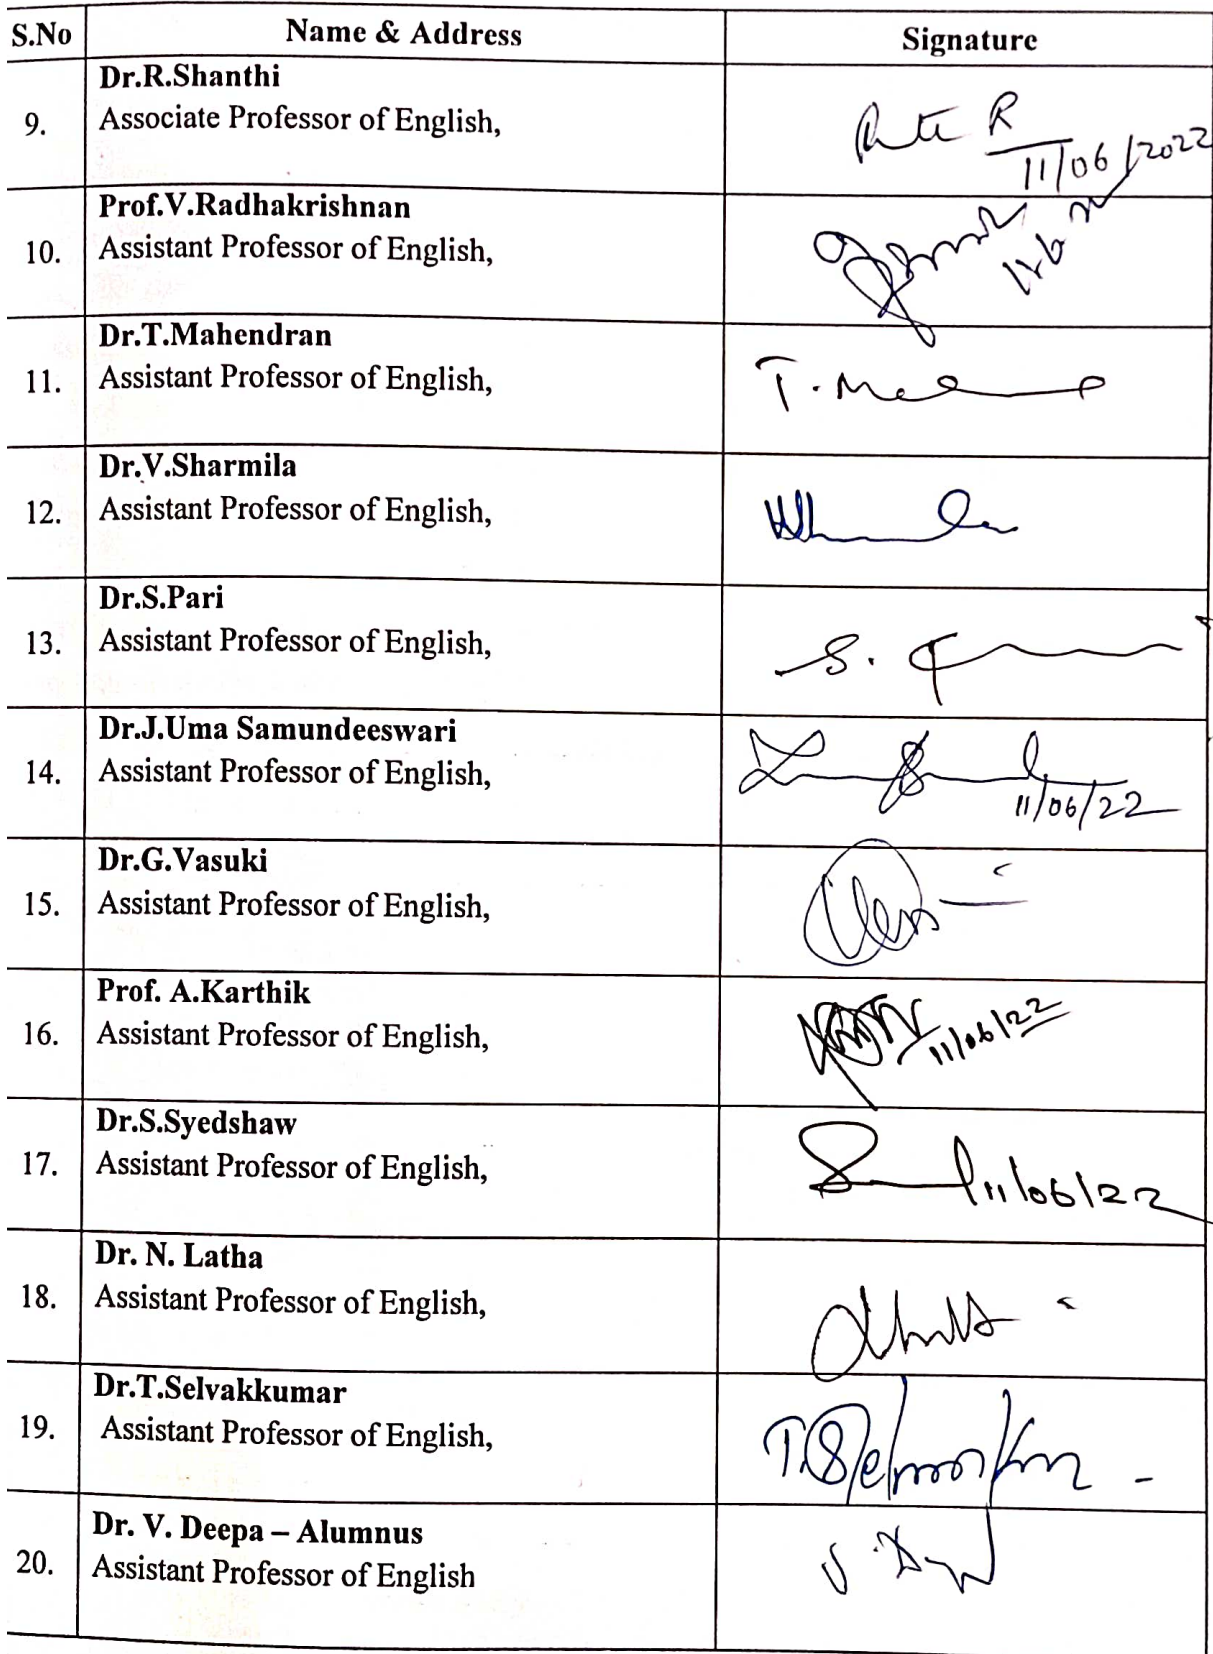 S.No Name & Address Signature
Dr.R.Shanthi
9. Associate Professor of English,
11/06/2022
Prof.V.Radhakrishnan
10. Assistant Professor of English,
Dr.T.Mahendran
11. Assistant Professor of English,
Dr.V.Sharmila
12. Assistant Professor of English,
Dr.S.Pari
13. Assistant Professor of English,
Dr.J.Uma Samundeeswari
14. Assistant Professor of English,
11/06/22
Dr.G.Vasuki
15. Assistant Professor of English,
Prof. A.Karthik
16. Assistant Professor of English,
11/06/22
Dr.S.Syedshaw
17. Assistant Professor of English,
11/06/22
Dr. N. Latha
18. Assistant Professor of English,
Dr.T.Selvakkumar
19. Assistant Professor of English,
Dr. V. Deepa – Alumnus
20. Assistant Professor of English